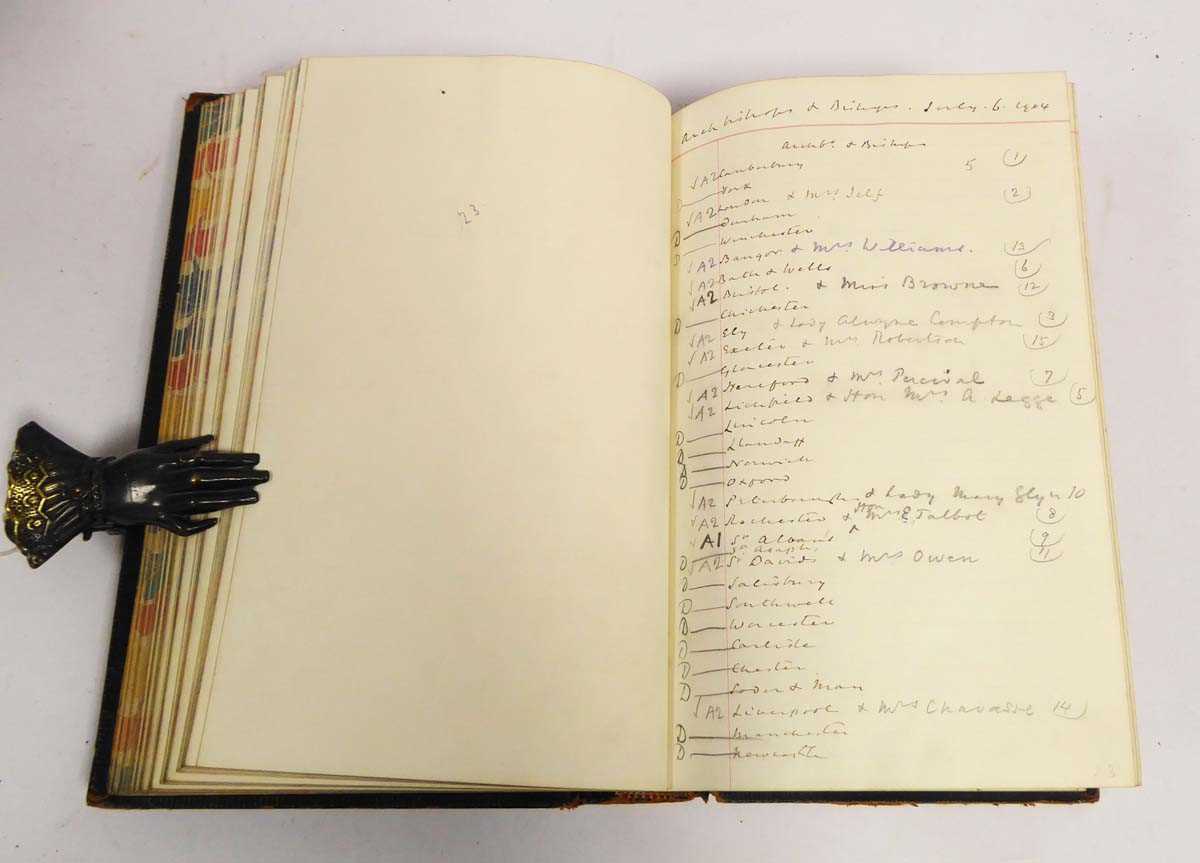 23
Archbishops & Bishops. July. 6. 1904
Archbs. & Bishops
√A2 Canterbury 5 (1)
D — York
√A2 London & Mrs. Jelf (2)
D — Durham
D — Winchester
√A2 Bangor & Mrs Williams. (13)
√A2 Bath & Wells (6)
√A2 Bristol. & Miss Browne (12)
D — Chichester
√A2 Ely & Lady Alwyne Compton (3)
√A2 Exeter & Mrs Robertson (15)
D — Gloucester
√A2 Hereford & Mrs. Percival (7)
√A2 Lichfield & Hon Mrs A Legge (5)
D — Lincoln
D — Llandaff
D — Norwich
D — Oxford
√A2 Peterborough & Lady Mary Glyn 10
√A2 Rochester & Hon Mrs E Talbot (8)
√A1 St Albans (9)
D — St Asaph
√A2 St Davids & Mrs Owen (11)
D — Salisbury
D — Southwell
D — Worcester
D — Carlisle
D — Chester
D — Sodor & Man
√A2 Liverpool & Mrs Chavasse (14)
D — Manchester
D — Newcastle
23